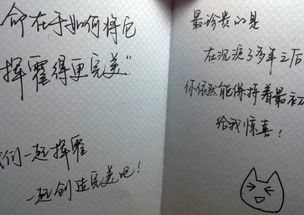 命在于如何将它
挥霍得更完美”
们一起挥霍
一起创造完美吧！
最珍贵的是
在沉淀了多年之后
你依然能保持着最初
给我惊喜！